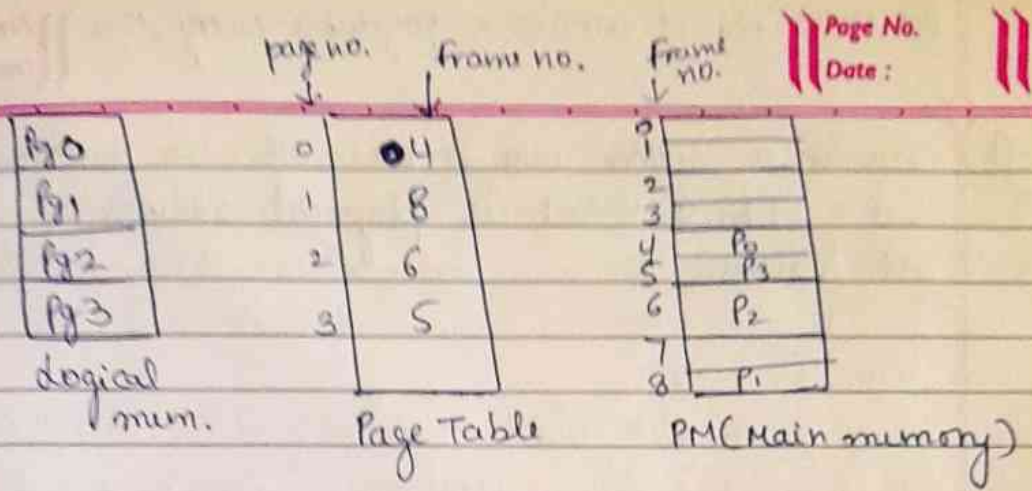 page no. frame no. Frame no.
Page No.
Date :
Pg 0
Pg 1
Pg 2
Pg 3
Logical mem.
0 4
1 8
2 6
3 5
Page Table
0
1
2
3
4 P0
5 P3
6 P2
7
8 P1
PM (Main memory)